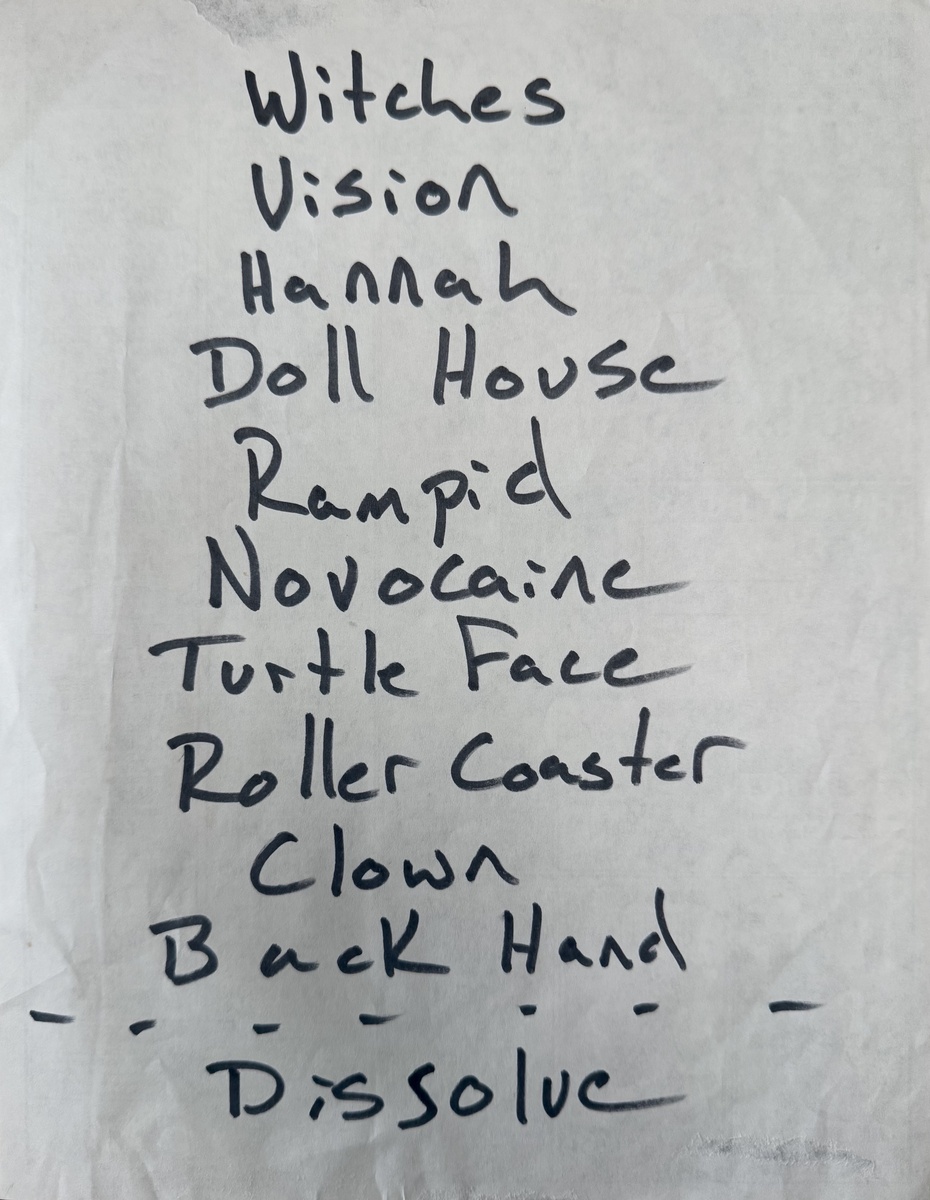 Witches
Vision
Hannah
Doll House
Rampid
Novocaine
Turtle Face
Roller Coaster
Clown
Back Hand
- - - - - - -
Dissolve